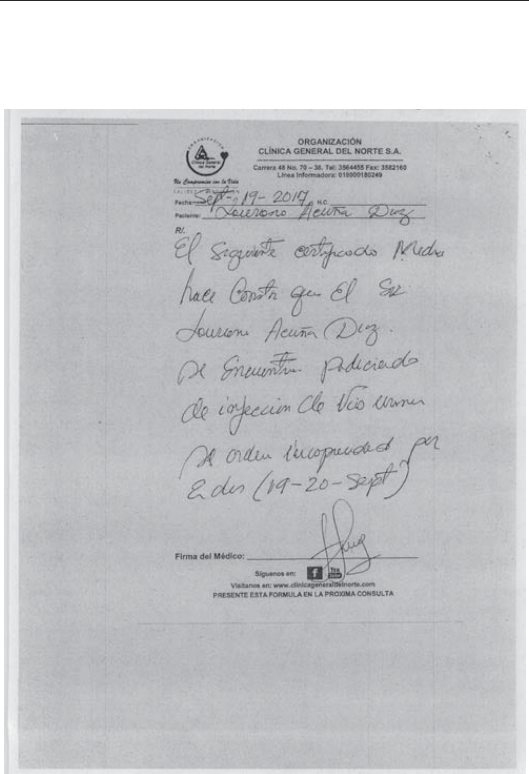 ORGANIZACIÓN
CLÍNICA GENERAL DEL NORTE S.A.
Carrera 48 No. 70 – 38, Tel: 3564455 Fax: 3582160
Línea Informadora: 018000180249
ORGANIZACIÓN
Clínica General
del Norte
No Comprometa con la Vida
Fecha: Sept-19-2017 H.C.
Paciente: Acuña Diaz
R/.
El Siguiente certificado Medico
hace Constar que El Sr
Acuña Diaz.
Se Encuentra Padeciendo
de infeccion de Vias urinarias
Se orden incapacidad por
2 dias (19-20-Sept)
Firma del Médico:
Síguenos en: f You Tube
Visítanos en: www.clinicageneraldelnorte.com
PRESENTE ESTA FORMULA EN LA PROXIMA CONSULTA